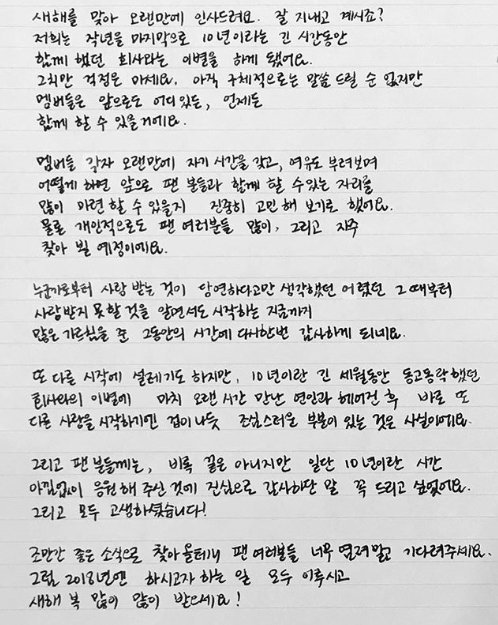 새해를 맞아 오랜만에 인사드려요. 잘 지내고 계시죠?
저희는 작년을 마지막으로 10년이라는 긴 시간동안
함께 했던 회사와는 이별을 하게 됐어요.
그치만 걱정은 마세요. 아직 구체적으로는 말씀 드릴 순 없지만
멤버들은 앞으로도 어디 있든, 언제든
함께 할 수 있을거에요.
멤버들 각자 오랜만에 자기 시간을 갖고, 여유도 부려보며
어떻게 하면 앞으로 팬 분들과 함께 할 수 있는 자리를
많이 마련할 수 있을지 진중히 고민해 보기로 했어요.
물론 개인적으로도 팬 여러분들 많이, 그리고 자주
찾아 뵐 예정이에요.
누군가로부터 사랑 받는 것이 당연하다고만 생각했던 어렸던 그 때부터
사랑받지 못할 것을 알면서도 시작하는 지금까지
많은 가르침을 준 그동안의 시간에 다시한번 감사하게 되네요.
또 다른 시작에 설레기도 하지만, 10년이란 긴 세월동안 동고동락했던
회사와의 이별에 마치 오랜시간 만난 연인과 헤어진 후 바로 또
다른 사랑을 시작하기엔 겁이 나듯 조심스러운 부분이 있는 것은 사실이에요.
그리고 팬 분들께는, 비록 끝은 아니지만 일단 10년이란 시간
아낌없이 응원해 주신 것에 진심으로 감사하단 말 꼭 드리고 싶었어요.
그리고 모두 고생하셨습니다!
조만간 좋은 소식으로 찾아올테니 팬 여러분들 너무 염려말고 기다려주세요.
그럼 2018년엔 하시고자 하는 일 모두 이루시고
새해 복 많이 많이 받으세요!